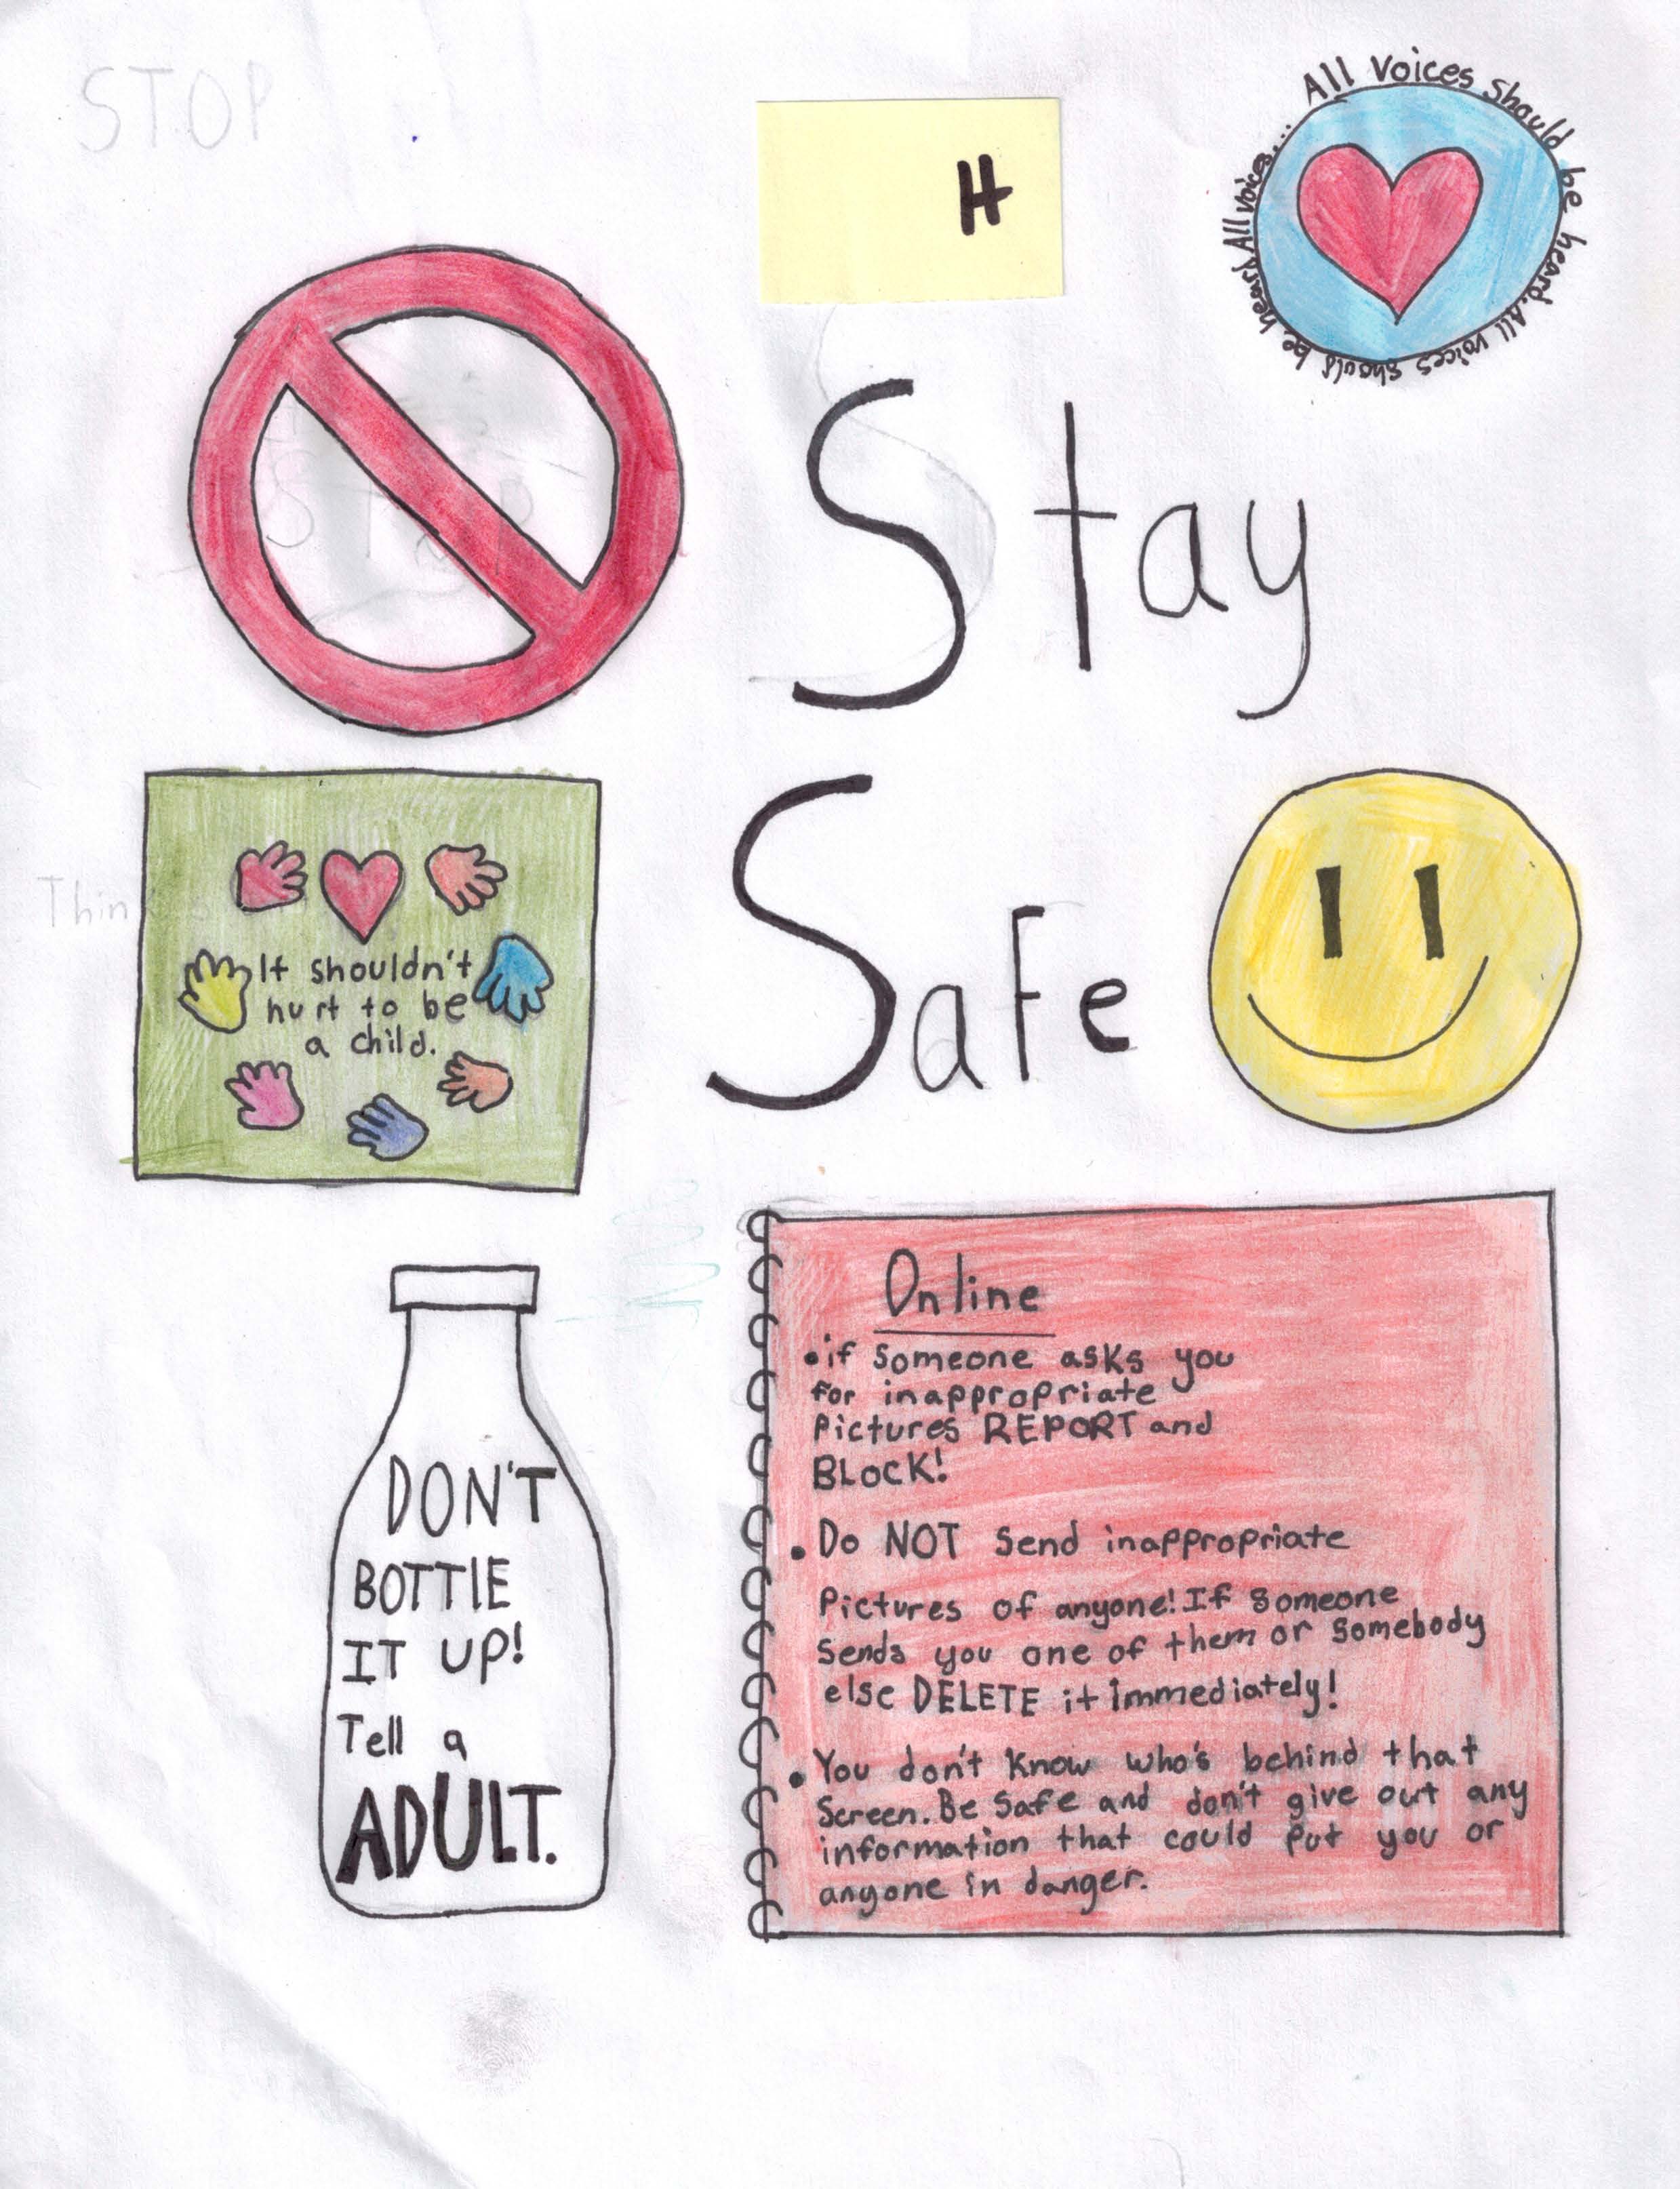 STOP
H
All Voices should be heard. All voices should be heard. All voices...
Stop
Stay
Safe
Thin
It shouldn't
hurt to be
a child.
DON'T
BOTTlE
IT UP!
Tell a
ADULT.
Online
•if Someone asks you
for inappropriate
Pictures REPORT and
BLOCK!
•Do NOT Send inappropriate
Pictures of anyone! If someone
Sends you one of them or Somebody
else DELETE it immediately!
•You don't Know who's behind that
Screen. Be Safe and don't give out any
information that could put you or
anyone in danger.